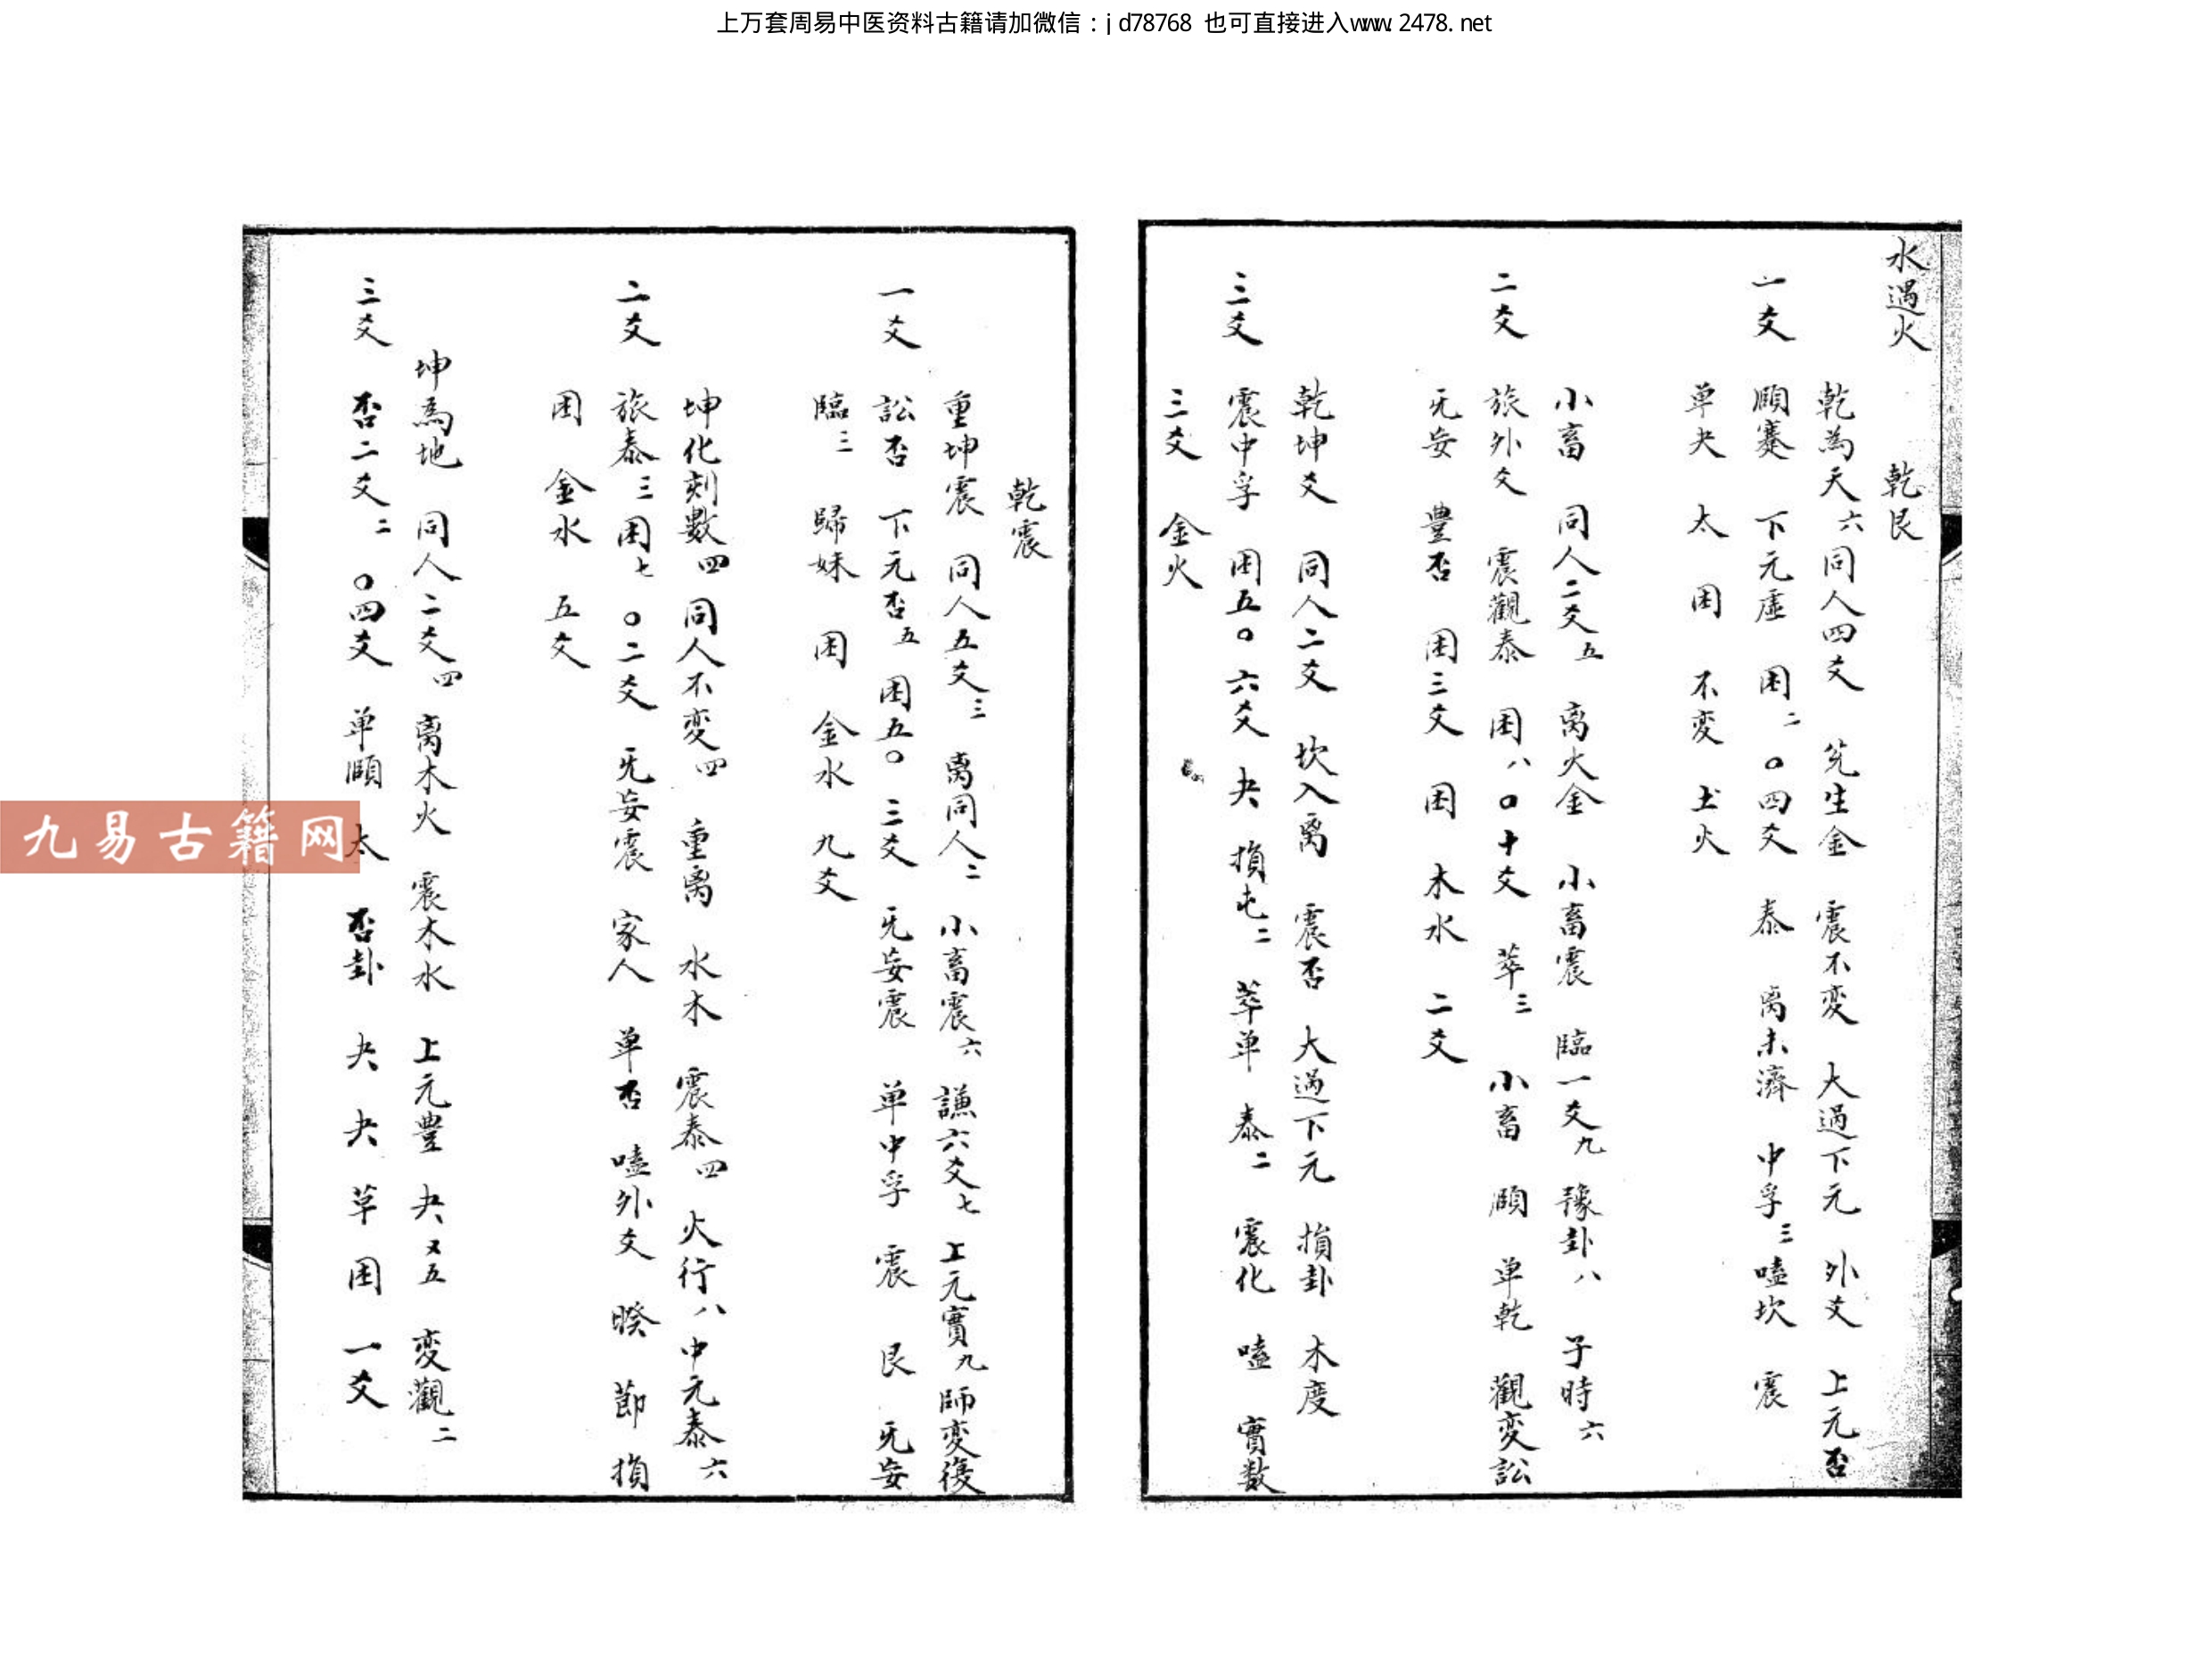 上万套周易中医资料古籍请加微信：jd78768 也可直接进入www.2478.net
水遇火 乾艮
乾為天六 同人四爻 兊生金 震不变 大過下元 外爻 上元否
一爻 頤蹇 下元虛 困二〇四爻 泰 离未濟 中孚三 嗑坎 震
单夬 太 困 不变 土火
小畜 同人二爻五 离火金 小畜震 臨一爻九 豫卦八 子時六
二爻 旅外爻 震觀泰 困八〇十爻 萃三 小畜 頤 单乾 觀变訟
旡妄 豐否 困三爻 困 木水 二爻
乾坤爻 同人二爻 坎入离 震否 大過下元 損卦 木度
三爻 震中孚 困五〇六爻 夬 損屯二 萃单 泰二 震化 嗑 實数
三爻 金火
乾震
重坤震 同人五爻三 离同人二 小畜震六 謙六爻七 上元實九 師变復
一爻 訟否 下元否五 困五〇三爻 旡妄震 单中孚 震 艮 旡妄
臨三 歸妹 困 金水 九爻
坤化刻數四 同人不变四 重离 水木 震泰四 火行八 中元泰六
二爻 旅泰三 困七〇二爻 旡妄震 家人 单否 嗑外爻 睽 節 損
困 金水 五爻
坤為地 同人二爻四 离木火 震木水 上元豐 夬又五 变觀二
三爻 否二爻二〇四爻 单頤 太 否卦 夬 夬 草 困 一爻
九易古籍网